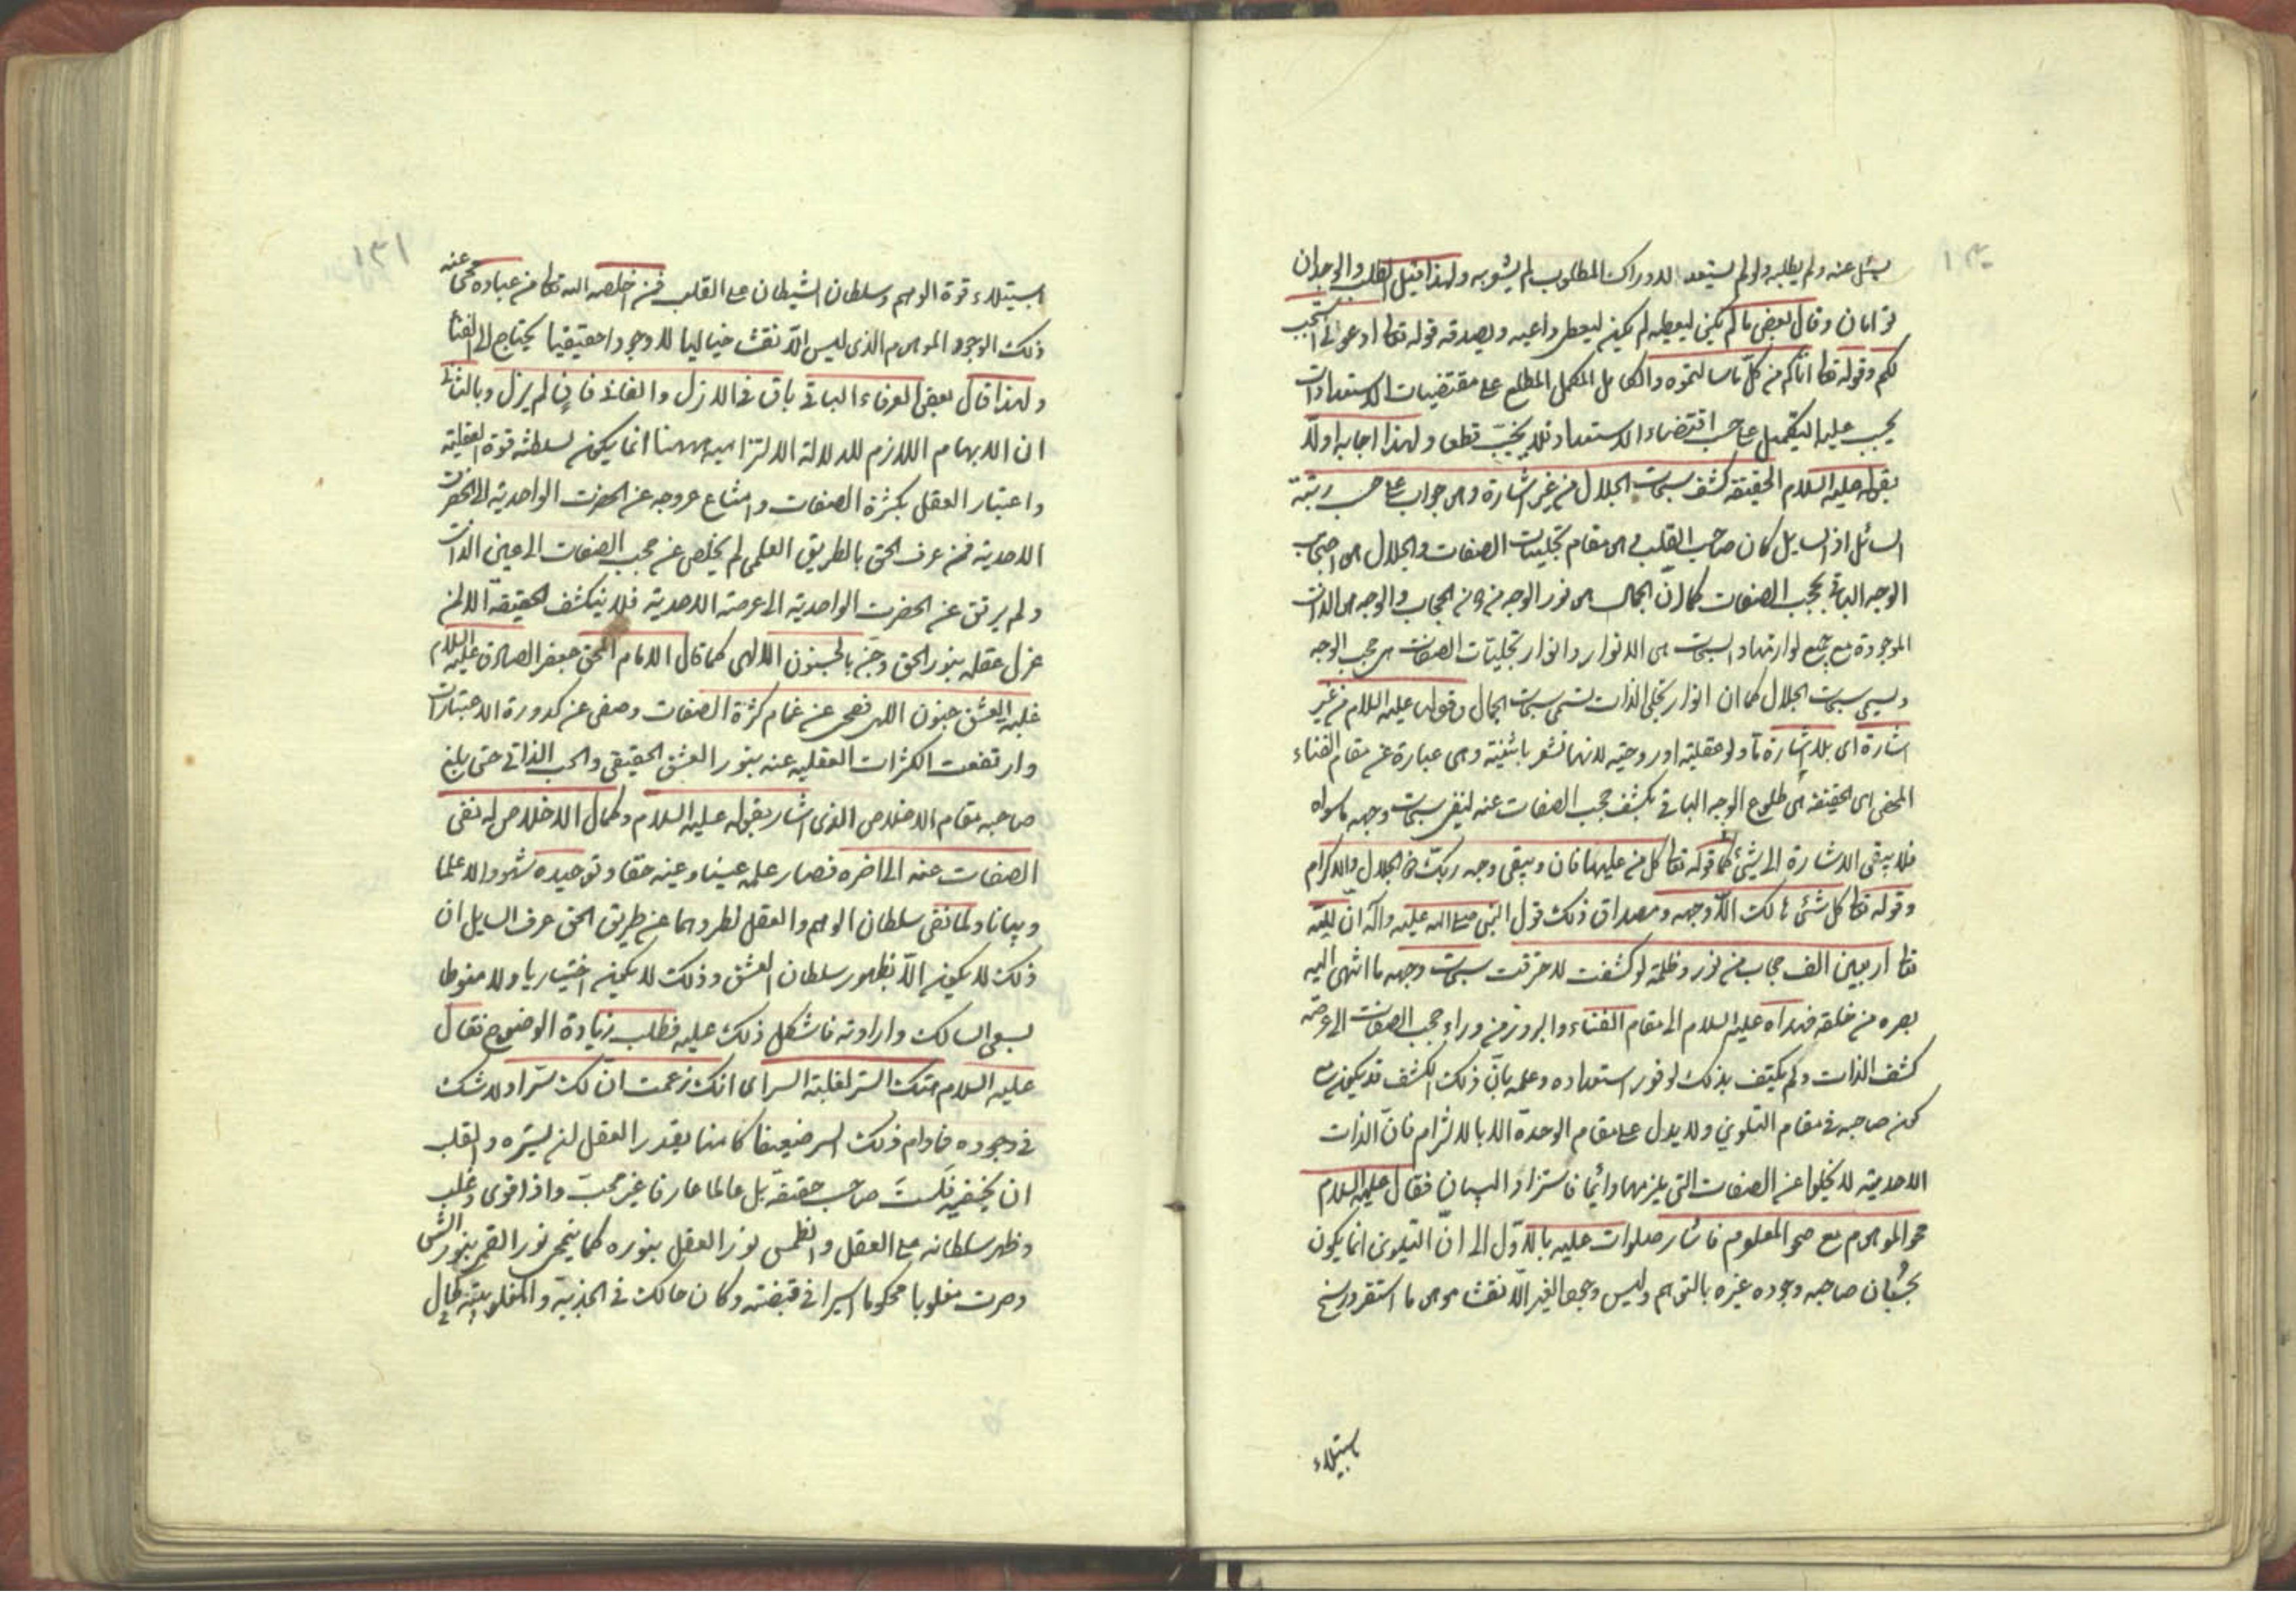 ۱۳۰
يسئل عنه ولم يطلبه ولو لم يستعد لادراك المطلوب لم يشوبه ولهذا قيل الطلب والوجدان
توأمان وقال بعض ما لم يكن ليعطيه لم يكن ليعطى داعيه ويصدقه قوله تعالى ادعونى استجب
لكم وقوله تعالى اتاكم من كل ما سالتموه والكامل المكمل المطلع على مقتضيات الاستعدادات
يجب عليه التكميل على حسب اقتضاء الاستعداد فلا يخيب قطعا ولهذا اجابه اولا
بقوله عليه السلام الحقيقة كشف سبحات الجلال من غير اشارة وهى جواب على حسب رتبة
السائل اذ السايل كان صاحب القلب فى مقام تجليات الصفات والجلال هى احتجاب
الوجه الباقى بحجب الصفات كما ان الجمال هى نور الوجه من دون الحجاب والوجه هى الذات
الموجودة مع جميع لوازمها والسبحات هى الانوار وانوار تجليات الصفات هى حجب الوجه
ويسمى سبحات الجلال كما ان انوار تجلى الذات تسمى سبحات الجمال وقوله عليه السلام من غير
اشارة اى بلا اشارة ما ولو عقلية او روحية لانها تشعر باثنينية وهى عبارة عن مقام الفناء
المحض اى الحقيقة هى طلوع الوجه الباقى بكشف حجب الصفات عنه لينفى سبحات وجهه ما سواه
فلا يبقى الاشارة الى شئ كما قوله تعالى كل من عليها فان ويبقى وجه ربك ذو الجلال والاكرام
وقوله تعالى كل شئ هالك الا وجهه ومصداق ذلك قول النبى صلى الله عليه وآله ان لله
تعالى اربعين الف حجاب من نور وظلمة لو كشفت لاحرقت سبحات وجهه ما انتهى اليه
بصره من خلقه فهداه عليه السلام الى مقام الفناء والبروز من وراء حجب الصفات الى عرصة
كشف الذات ولم يكتف بذلك لوفور استعداده وعلمه بان ذلك الكشف قد يكون مع
كون صاحبه فى مقام التلوين ولا يدل على مقام الوحدة الا بالالتزام فان الذات
الاحدية لا يخلوا عن الصفات التى يلزمها دائما فاستزاد البيان فقال عليه السلام
محو الموهوم مع صحو المعلوم فاشار صلوات عليه بالاول الى ان التلوين انما يكون
بحسبان صاحبه وجوده غيره بالتوهم وليس وجود الغير الا نقشا موهوما استقر ورسخ
باستيلاء
۱۳۱
باستيلاء قوة الوهم وسلطان الشيطان على القلب فمن اخلصه الله تعالى من عباده محى عنه
ذلك الوجود الموهوم الذى ليس الا نقشا خياليا لا وجودا حقيقيا يحتاج الى الفناء
ولهذا قال بعض العرفاء الباقى باق فى الازل والفانى فان لم يزل وبالثانى
ان الابهام اللازم للدلالة الالتزامية ههنا انما يكون لسلطنة قوة العقلية
واعتبار العقل بكثرة الصفات وامتناع عروجه عن الحضرت الواحدية الى الحضرت
الاحدية فمن عرف الحق بالطريق العلمى لم يخلص عن حجب الصفات الى عين الذات
ولم يرتق عن الحضرت الواحدية الى عرصة الاحدية فلا ينكشف الحقيقة الا لمن
عزل عقله بنور الحق وجن بالجنون الالهى كما قال الامام المحق جعفر الصادق عليه السلام
غلبة العشق جنون الهى فصحى عن غمام كثرة الصفات وصفى عن كدورة الاعتبارات
وارتفعت الكثرات العقليه عنه بنور العشق الحقيقى والحب الذاتى حتى بلغ
صاحبه مقام الاخلاص الذى اشار بقوله عليه السلام وكمال الاخلاص له نفى
الصفات عنه الى اخره فصار علمه عينا وعينه حقا وتوحيده شهودا لا علما
وبيانا ولما نفى سلطان الوهم والعقل لطردهما عن طريق الحق عرف السايل ان
ذلك لا يكون الا بظهور سلطان العشق وذلك لا يكون اختياريا ولا منوطا
بسعى السالك وارادته فاشكل ذلك عليه فطلب زيادة الوضوح فقال
عليه السلام هتك الستر لغلبة السر اى انك زعمت ان لك سرا ولا شك
فى وجوده فمادام ذلك السر ضعيفا كامنا يقدر العقل لان يستره والقلب
ان يخفيه فلست صاحب حقيقة بل عالما عارفا غير محب واذا قوى وغلب
وظهر سلطانه على العقل وانطمس نور العقل بنوره كما ينمحى نور القمر بنور الشمس
وصرت مغلوبا محكوما اسيرا فى قبضته وكان حالك فى الجذبة والمغلوبية كحال